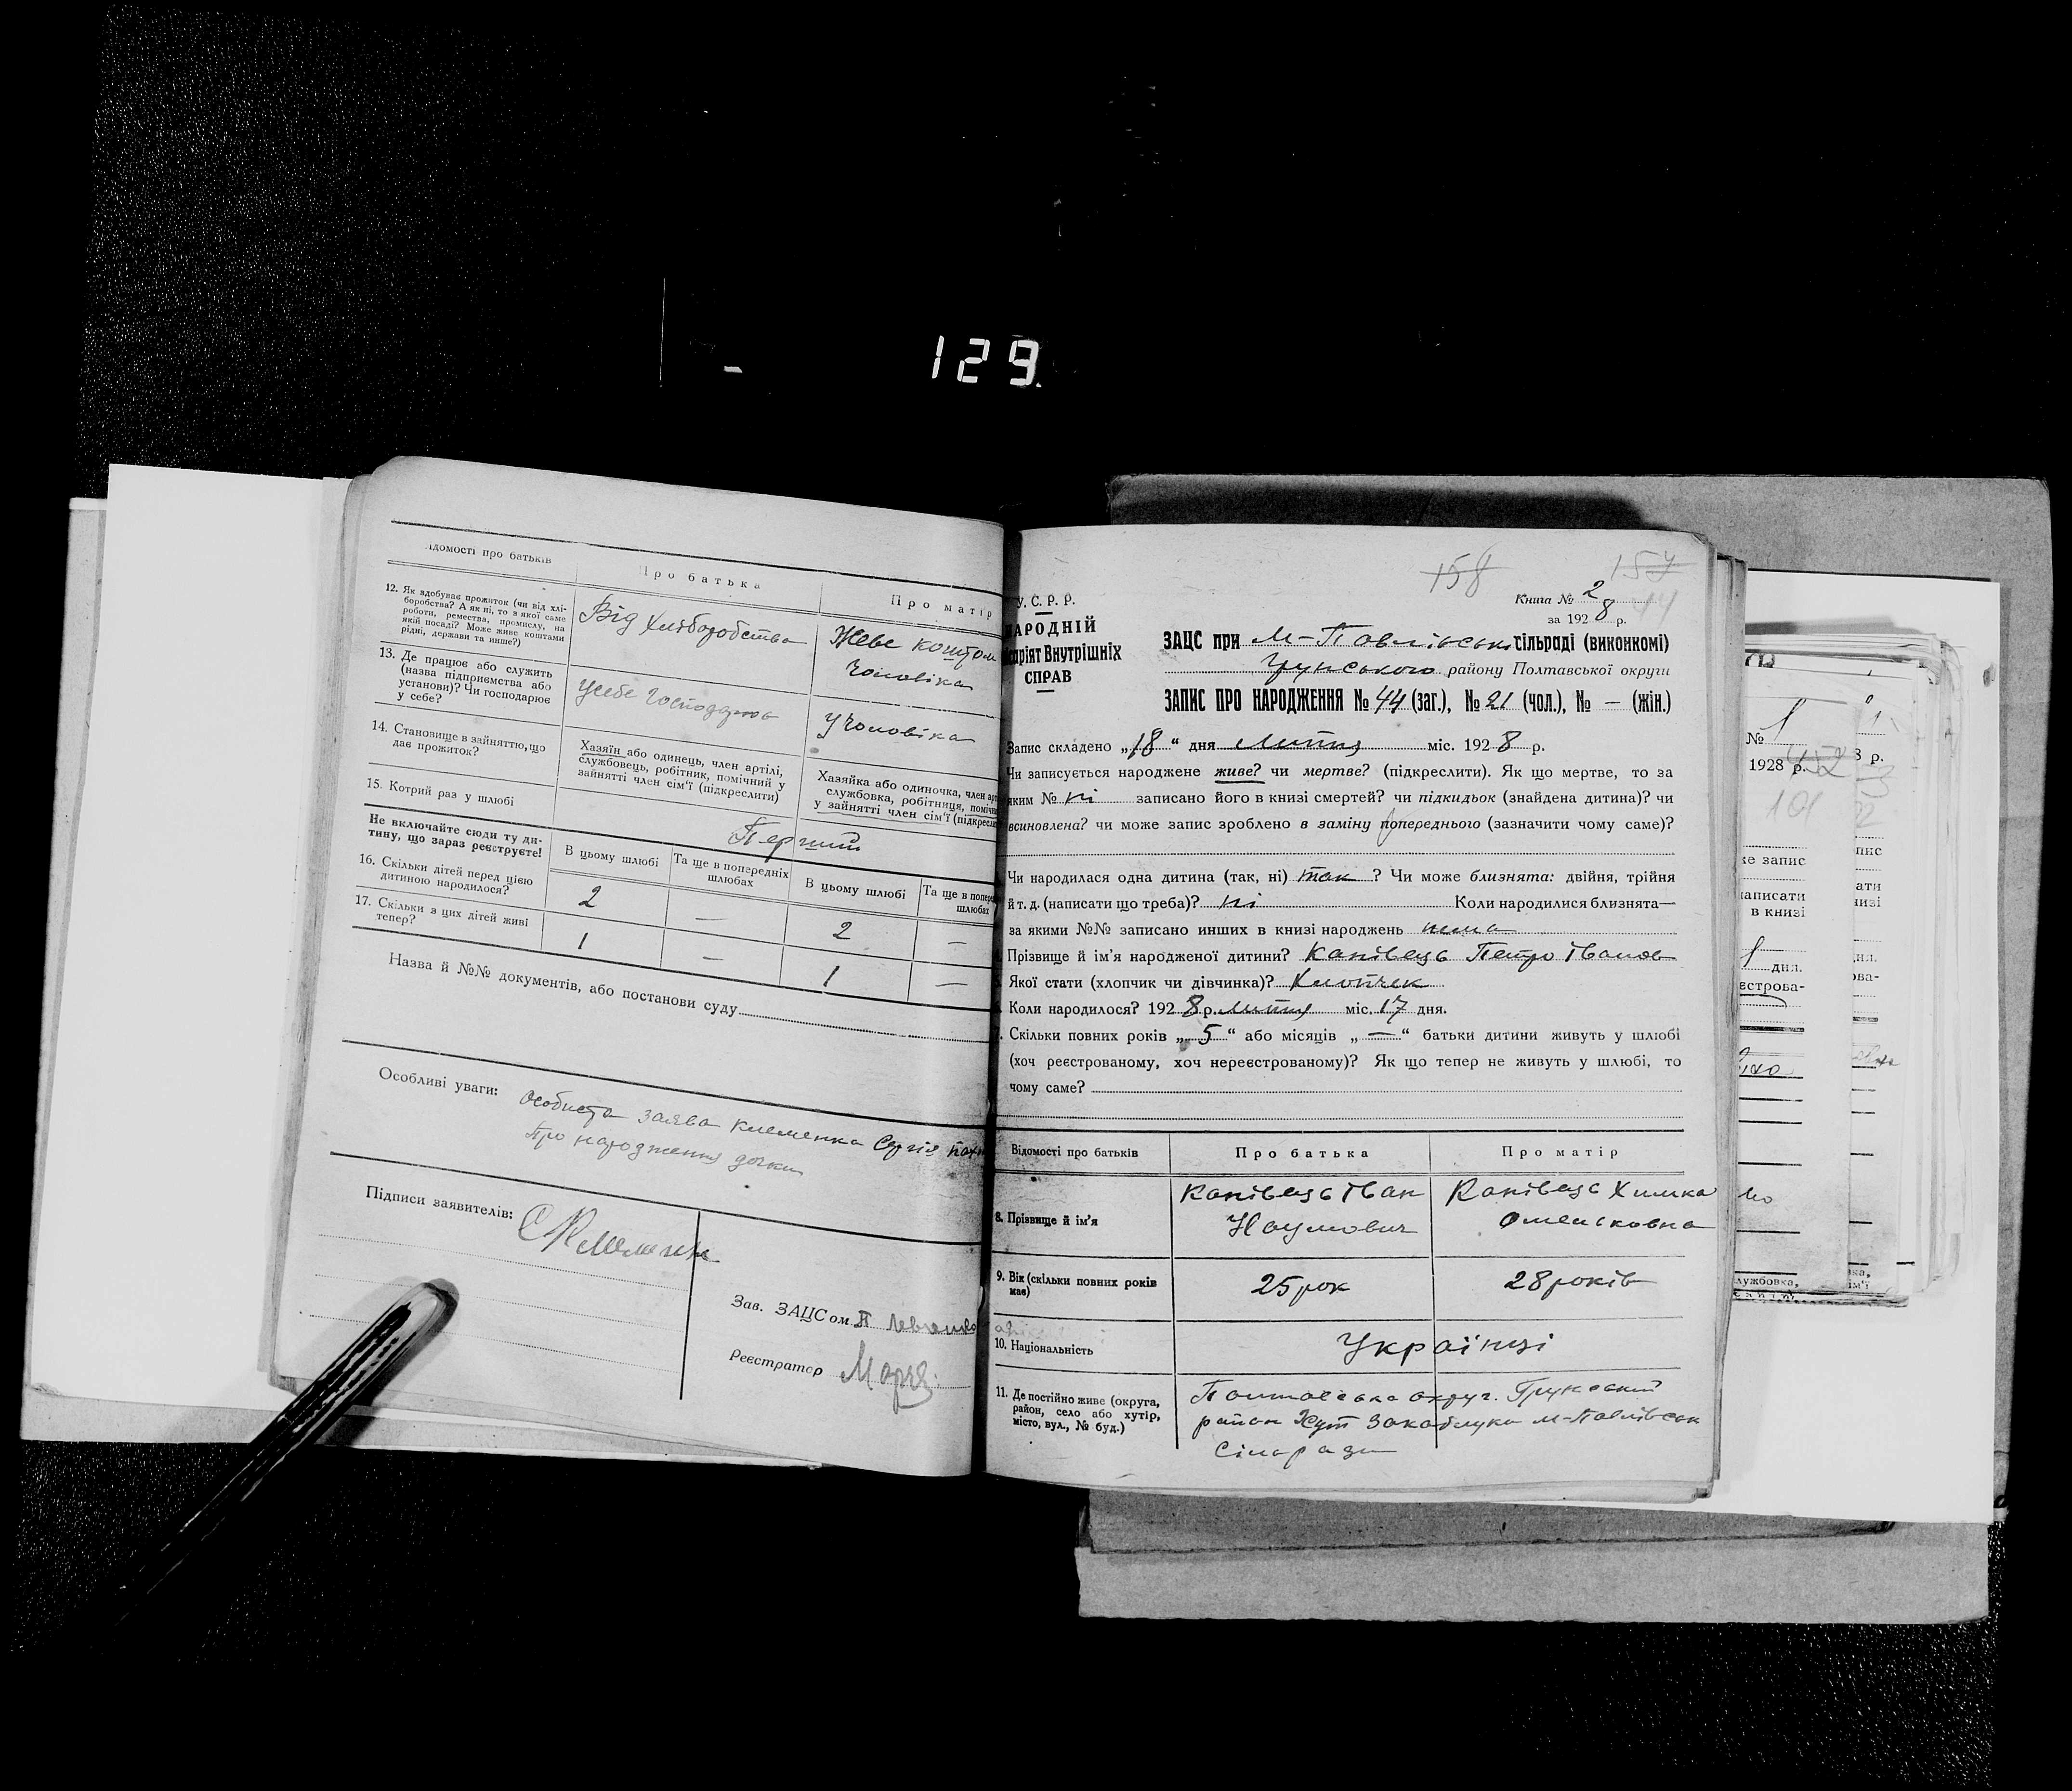 129.
Відомості про батьків
Про батька
Про матір
12. Як здобуває прожиток (чи від хлі-
боробства? А як ні, то з якої саме
роботи, ремества, промислу, на
якій посаді? Може живе коштами
рідні, держави та инше?)
Від хліборобства
Живе коштом
Чоловіка
13. Де працює або служить
(назва підприємства або
установи)? Чи господарює
у себе?
У себе господарює
У чоловіка
14. Становище в зайняттю, що
дає прожиток?
Хазяїн або одинець, член артілі,
службовець, робітник, помічний у
зайнятті член сім'ї (підкреслити)
Хазяйка або одиночка, член
службовка, робітниця,
у зайнятті член сім'ї
15. Котрий раз у шлюбі
Перший
Не включайте сюди ту ди-
тину, що зараз реєструєте!
В цьому шлюбі
Та ще в попередніх
шлюбах
В цьому шлюбі
Та ще в
шлюбах
16. Скільки дітей перед цією
дитиною народилося?
2 — 2 —
17. Скільки з цих дітей живі
тепер?
1 — 1 —
Назва й №№ документів, або постанови суду
Особливі уваги:
Особиста заява Клеменка Сергія
про народження дочки
Підписи заявителів:
Зав. ЗАЦСом
Реєстратор
158
157
Книга № 2
за 1928 р.
У. С. Р. Р.
НАРОДНІЙ
Внутрішніх
СПРАВ
ЗАЦС при М-Павлівськ сільраді (виконкомі)
Грунського району Полтавської округи
ЗАПИС ПРО НАРОДЖЕННЯ № 44 (заг.), № 21 (чол.), № — (жін.)
Запис складено „18“ дня Липня міс. 1928 р.
Чи записується народжене живе? чи мертве? (підкреслити). Як що мертве, то за
яким № ні записано його в книзі смертей? чи підкидьок (знайдена дитина)? чи
всиновлена? чи може запис зроблено в заміну попереднього (зазначити чому саме)?
Чи народилася одна дитина (так, ні) так ? Чи може близнята: двійня, трійня
й т. д. (написати що треба)? ні Коли народилися близнята—
за якими №№ записано инших в книзі народжень нема
Прізвище й ім'я народженої дитини? Канівець Петро Іванов
Якої стати (хлопчик чи дівчинка)? Хлопчек
Коли народилося? 1928 р. липня міс. 17 дня.
Скільки повних років „5“ або місяців „—“ батьки дитини живуть у шлюбі
(хоч реєстрованому, хоч нереєстрованому)? Як що тепер не живуть у шлюбі, то
чому саме?
Відомості про батьків
Про батька
Про матір
8. Прізвище й ім'я
Канівець Іван
Наумович
Канівець Химка
Омельковна
9. Вік (скільки повних років
має)
25 рок
28 років
10. Національність
Українці
11. Де постійно живе (округа,
район, село або хутір,
місто, вул., № буд.)
Полтавська округ. Грунський
район Хут Закаблуки м-Павлівськ
Сільради
№ 1
1928 р.
101
запис
написати
в книзі
дня.